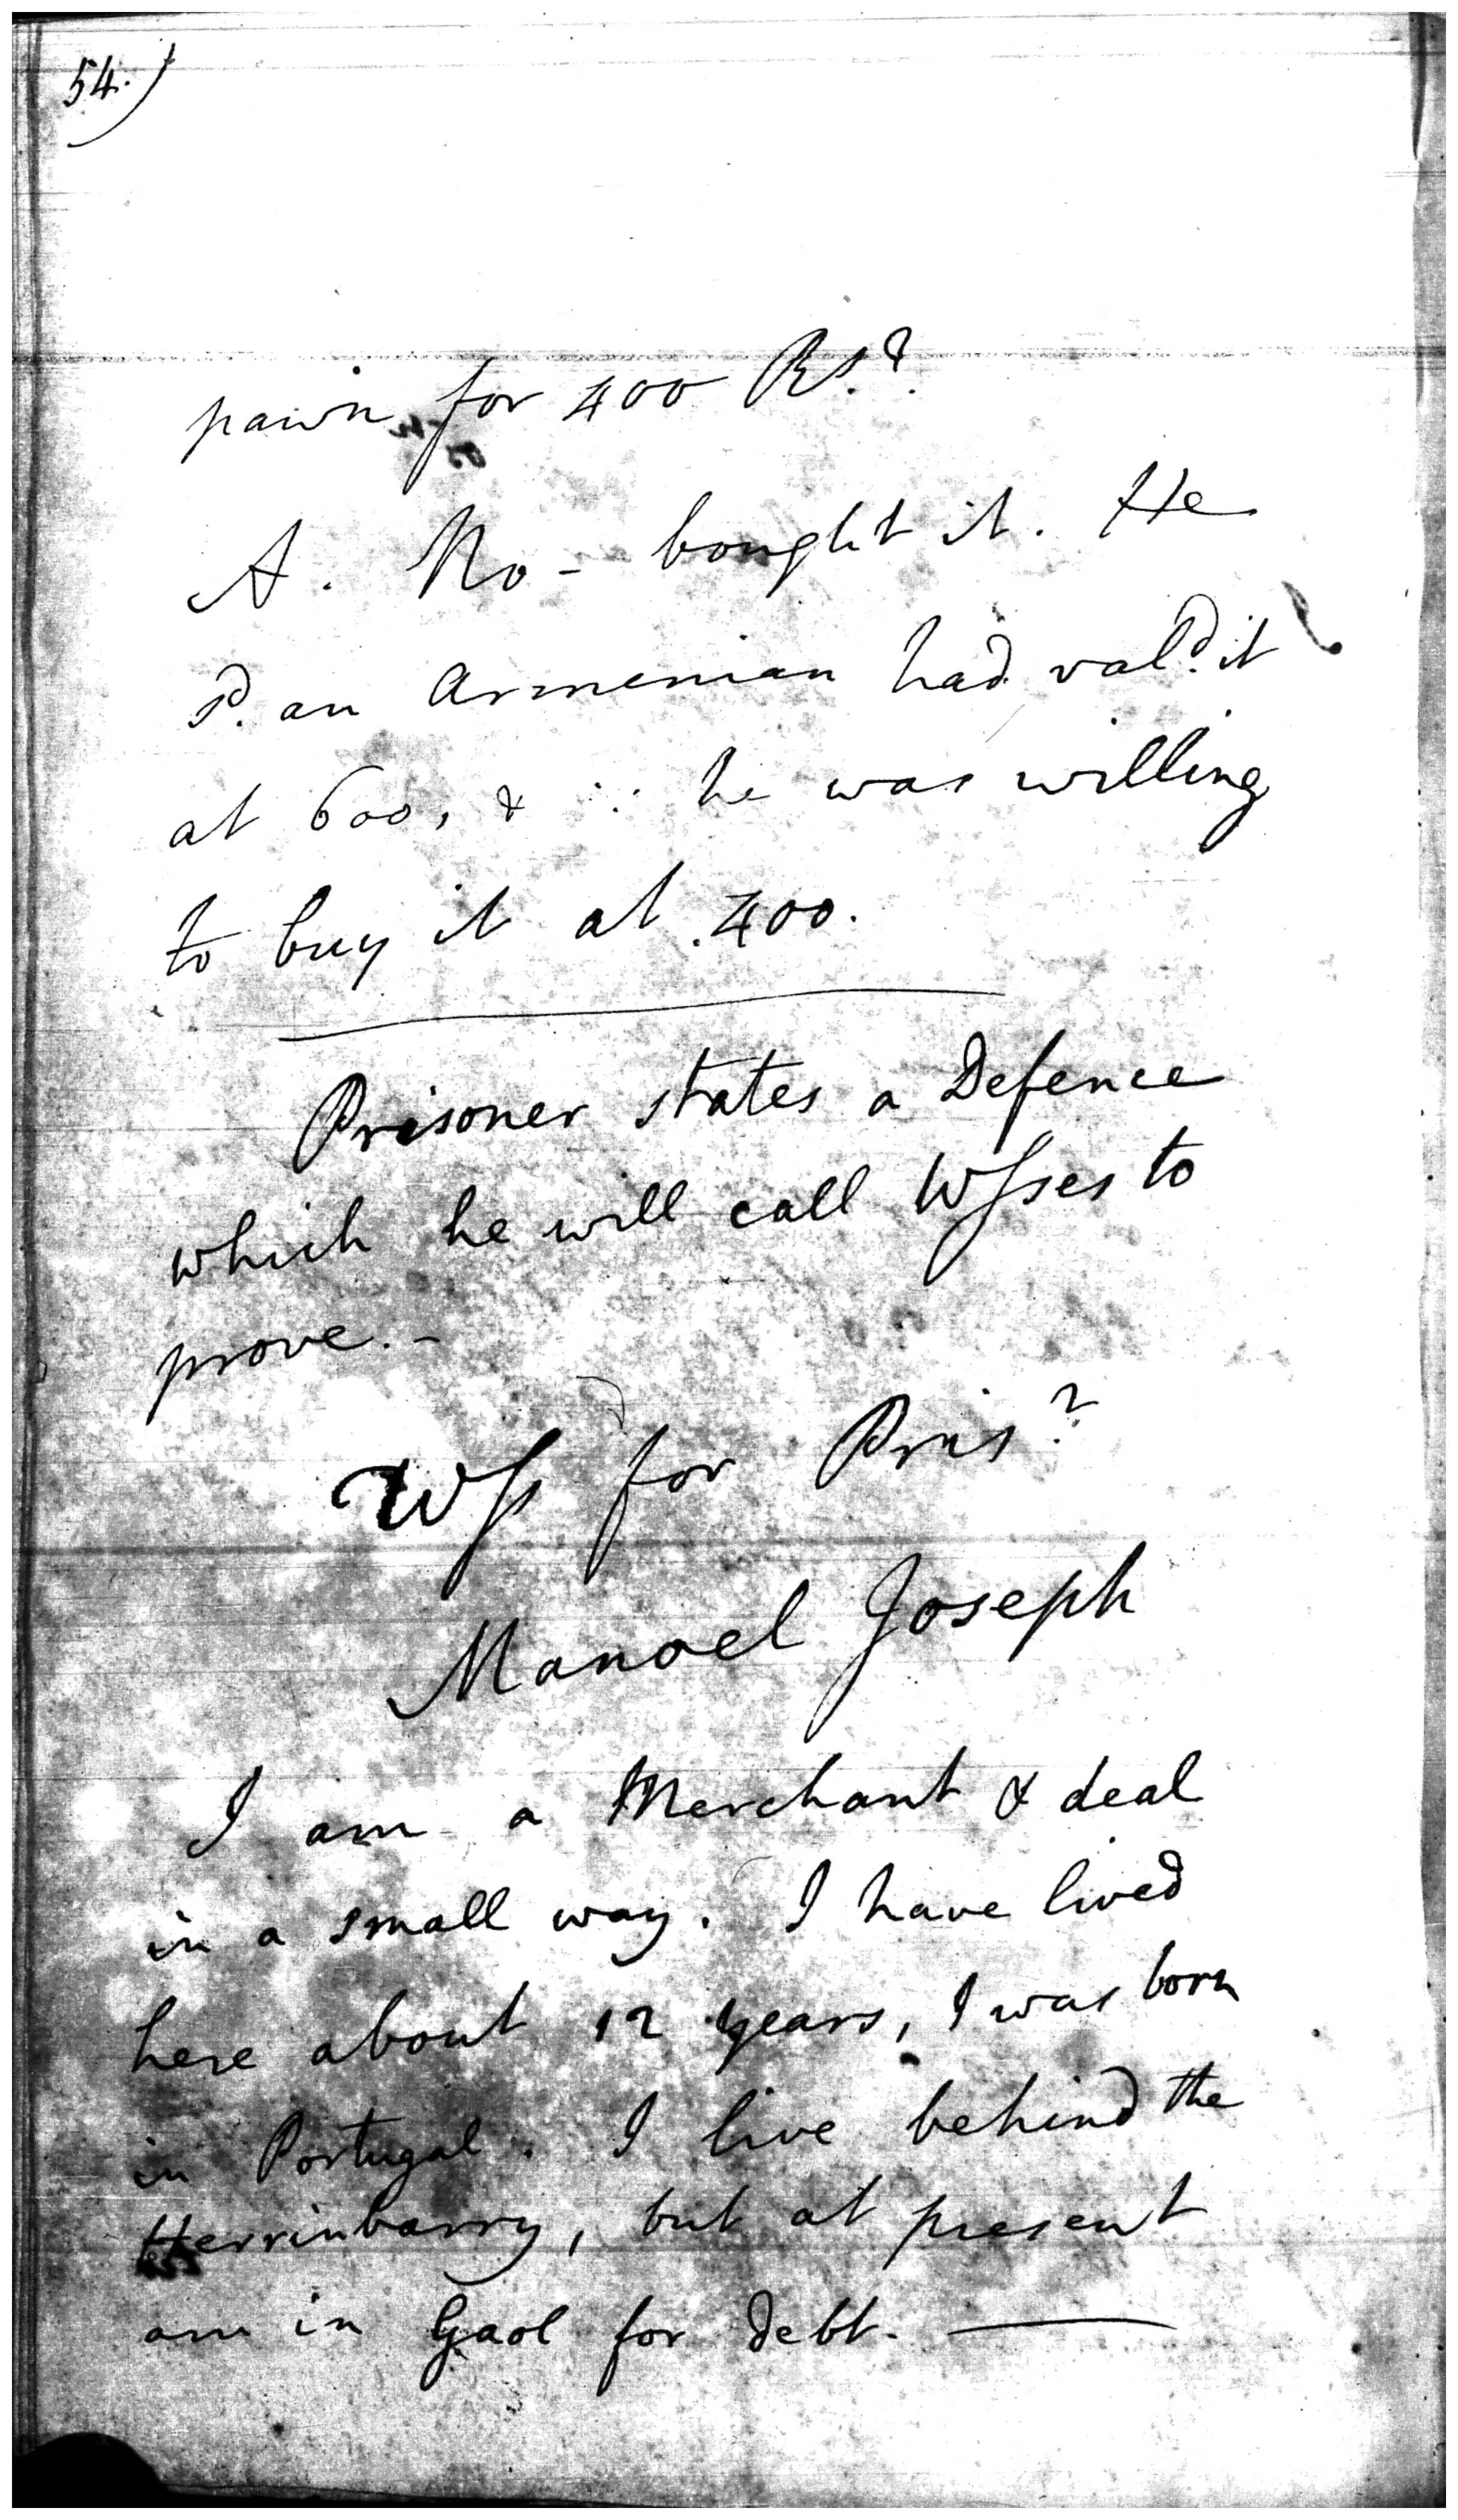 54.)
pawn for 400 Rs.?
A. No - bought it. He
sd. an Armenian had val.d it
at 600, & ∵ he was willing
to buy it at 400.
Prisoner states a Defence
which he will call Wſses to
prove. -
Wſs for Pris.r
Manoel Joseph
I am a Merchant & deal
in a small way. I have lived
here about 12 years, I was born
in Portugal. I live behind the
Herrinbarry, but at present
am in Gaol for debt. —